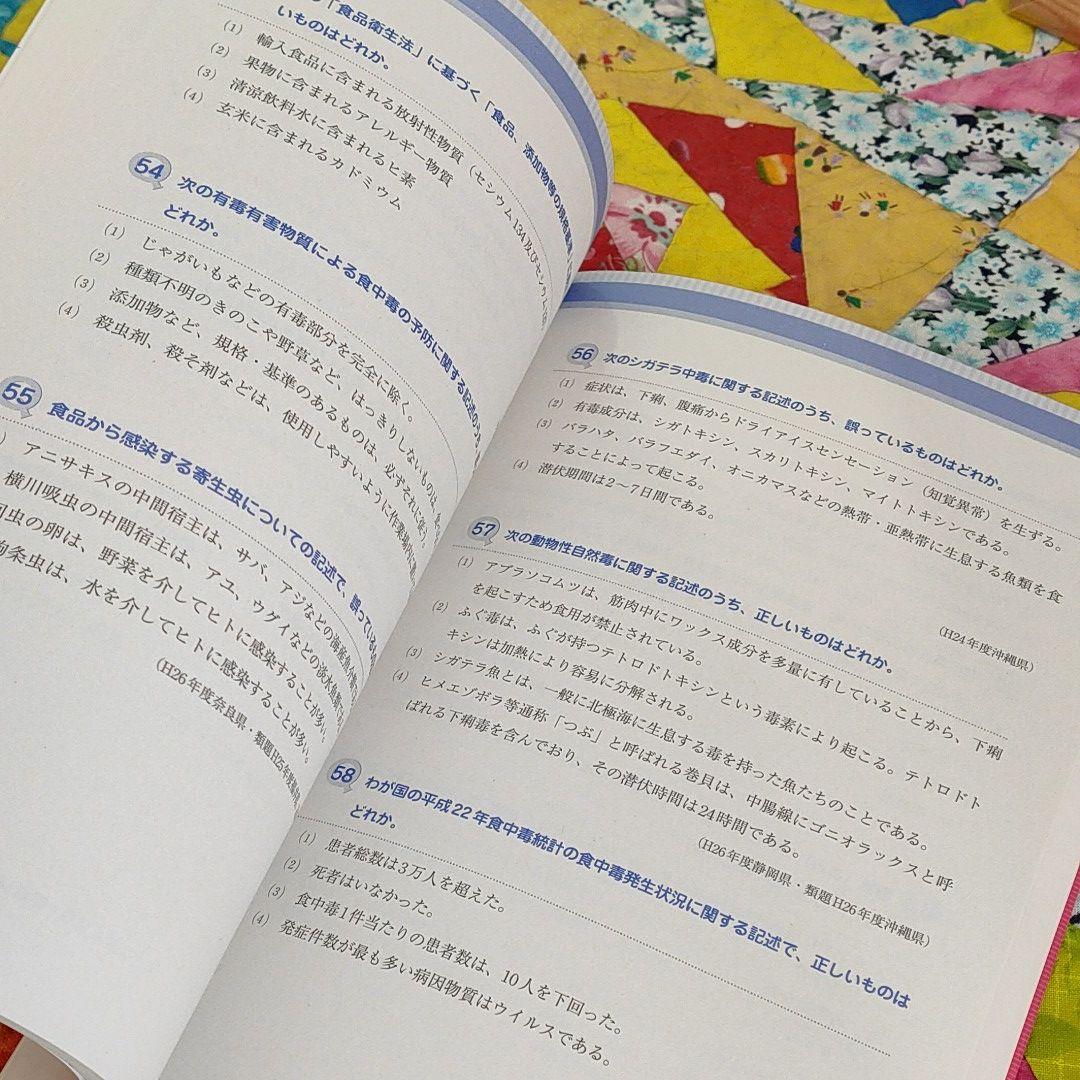 「食品衛生法」に基づく「食品、添加物等の規格基
いものはどれか。
(1) 輸入食品に含まれる放射性物質(セシウム134及びセシウム
(2) 果物に含まれるアレルギー物質
(3) 清涼飲料水に含まれるヒ素
(4) 玄米に含まれるカドミウム
54 次の有毒有害物質による食中毒の予防に関する記述のうち
どれか。
(1) じゃがいもなどの有毒部分を完全に除く。
(2) 種類不明のきのこや野草など、はっきりしないものは、
(3) 添加物など、規格・基準のあるものは、必ずそれに従う。
(4) 殺虫剤、殺そ剤などは、使用しやすいように作業場内
55 食品から感染する寄生虫についての記述で、誤っている
アニサキスの中間宿主は、サバ、アジなどの海産魚介類
横川吸虫の中間宿主は、アユ、ウグイなどの淡水魚類
虫の卵は、野菜を介してヒトに感染することが多い。
条虫は、水を介してヒトに感染することが多い。
(H26年度奈良県・類題H25年度
56 次のシガテラ中毒に関する記述のうち、誤っているものはどれか。
(1) 症状は、下痢、腹痛からドライアイスセンセーション(知覚異常)を生ずる。
(2) 有毒成分は、シガトキシン、スカリトキシン、マイトトキシンである。
(3) バラハタ、バラフエダイ、オニカマスなどの熱帯・亜熱帯に生息する魚類を食
することによって起こる。
(4) 潜伏期間は2〜7日間である。
(H24年度沖縄県)
57 次の動物性自然毒に関する記述のうち、正しいものはどれか。
(1) アブラソコムツは、筋肉中にワックス成分を多量に有していることから、下痢
を起こすため食用が禁止されている。
(2) ふぐ毒は、ふぐが持つテトロドトキシンという毒素により起こる。テトロドト
キシンは加熱により容易に分解される。
(3) シガテラ魚とは、一般に北極海に生息する毒を持った魚たちのことである。
(4) ヒメエゾボラ等通称「つぶ」と呼ばれる巻貝は、中腸線にゴニオラックスと呼
ばれる下痢毒を含んでおり、その潜伏時間は24時間である。
(H26年度静岡県・類題H26年度沖縄県)
58 わが国の平成22年食中毒統計の食中毒発生状況に関する記述で、正しいものは
どれか。
(1) 患者総数は3万人を超えた。
(2) 死者はいなかった。
(3) 食中毒1件当たりの患者数は、10人を下回った。
(4) 発症件数が最も多い病因物質はウイルスである。